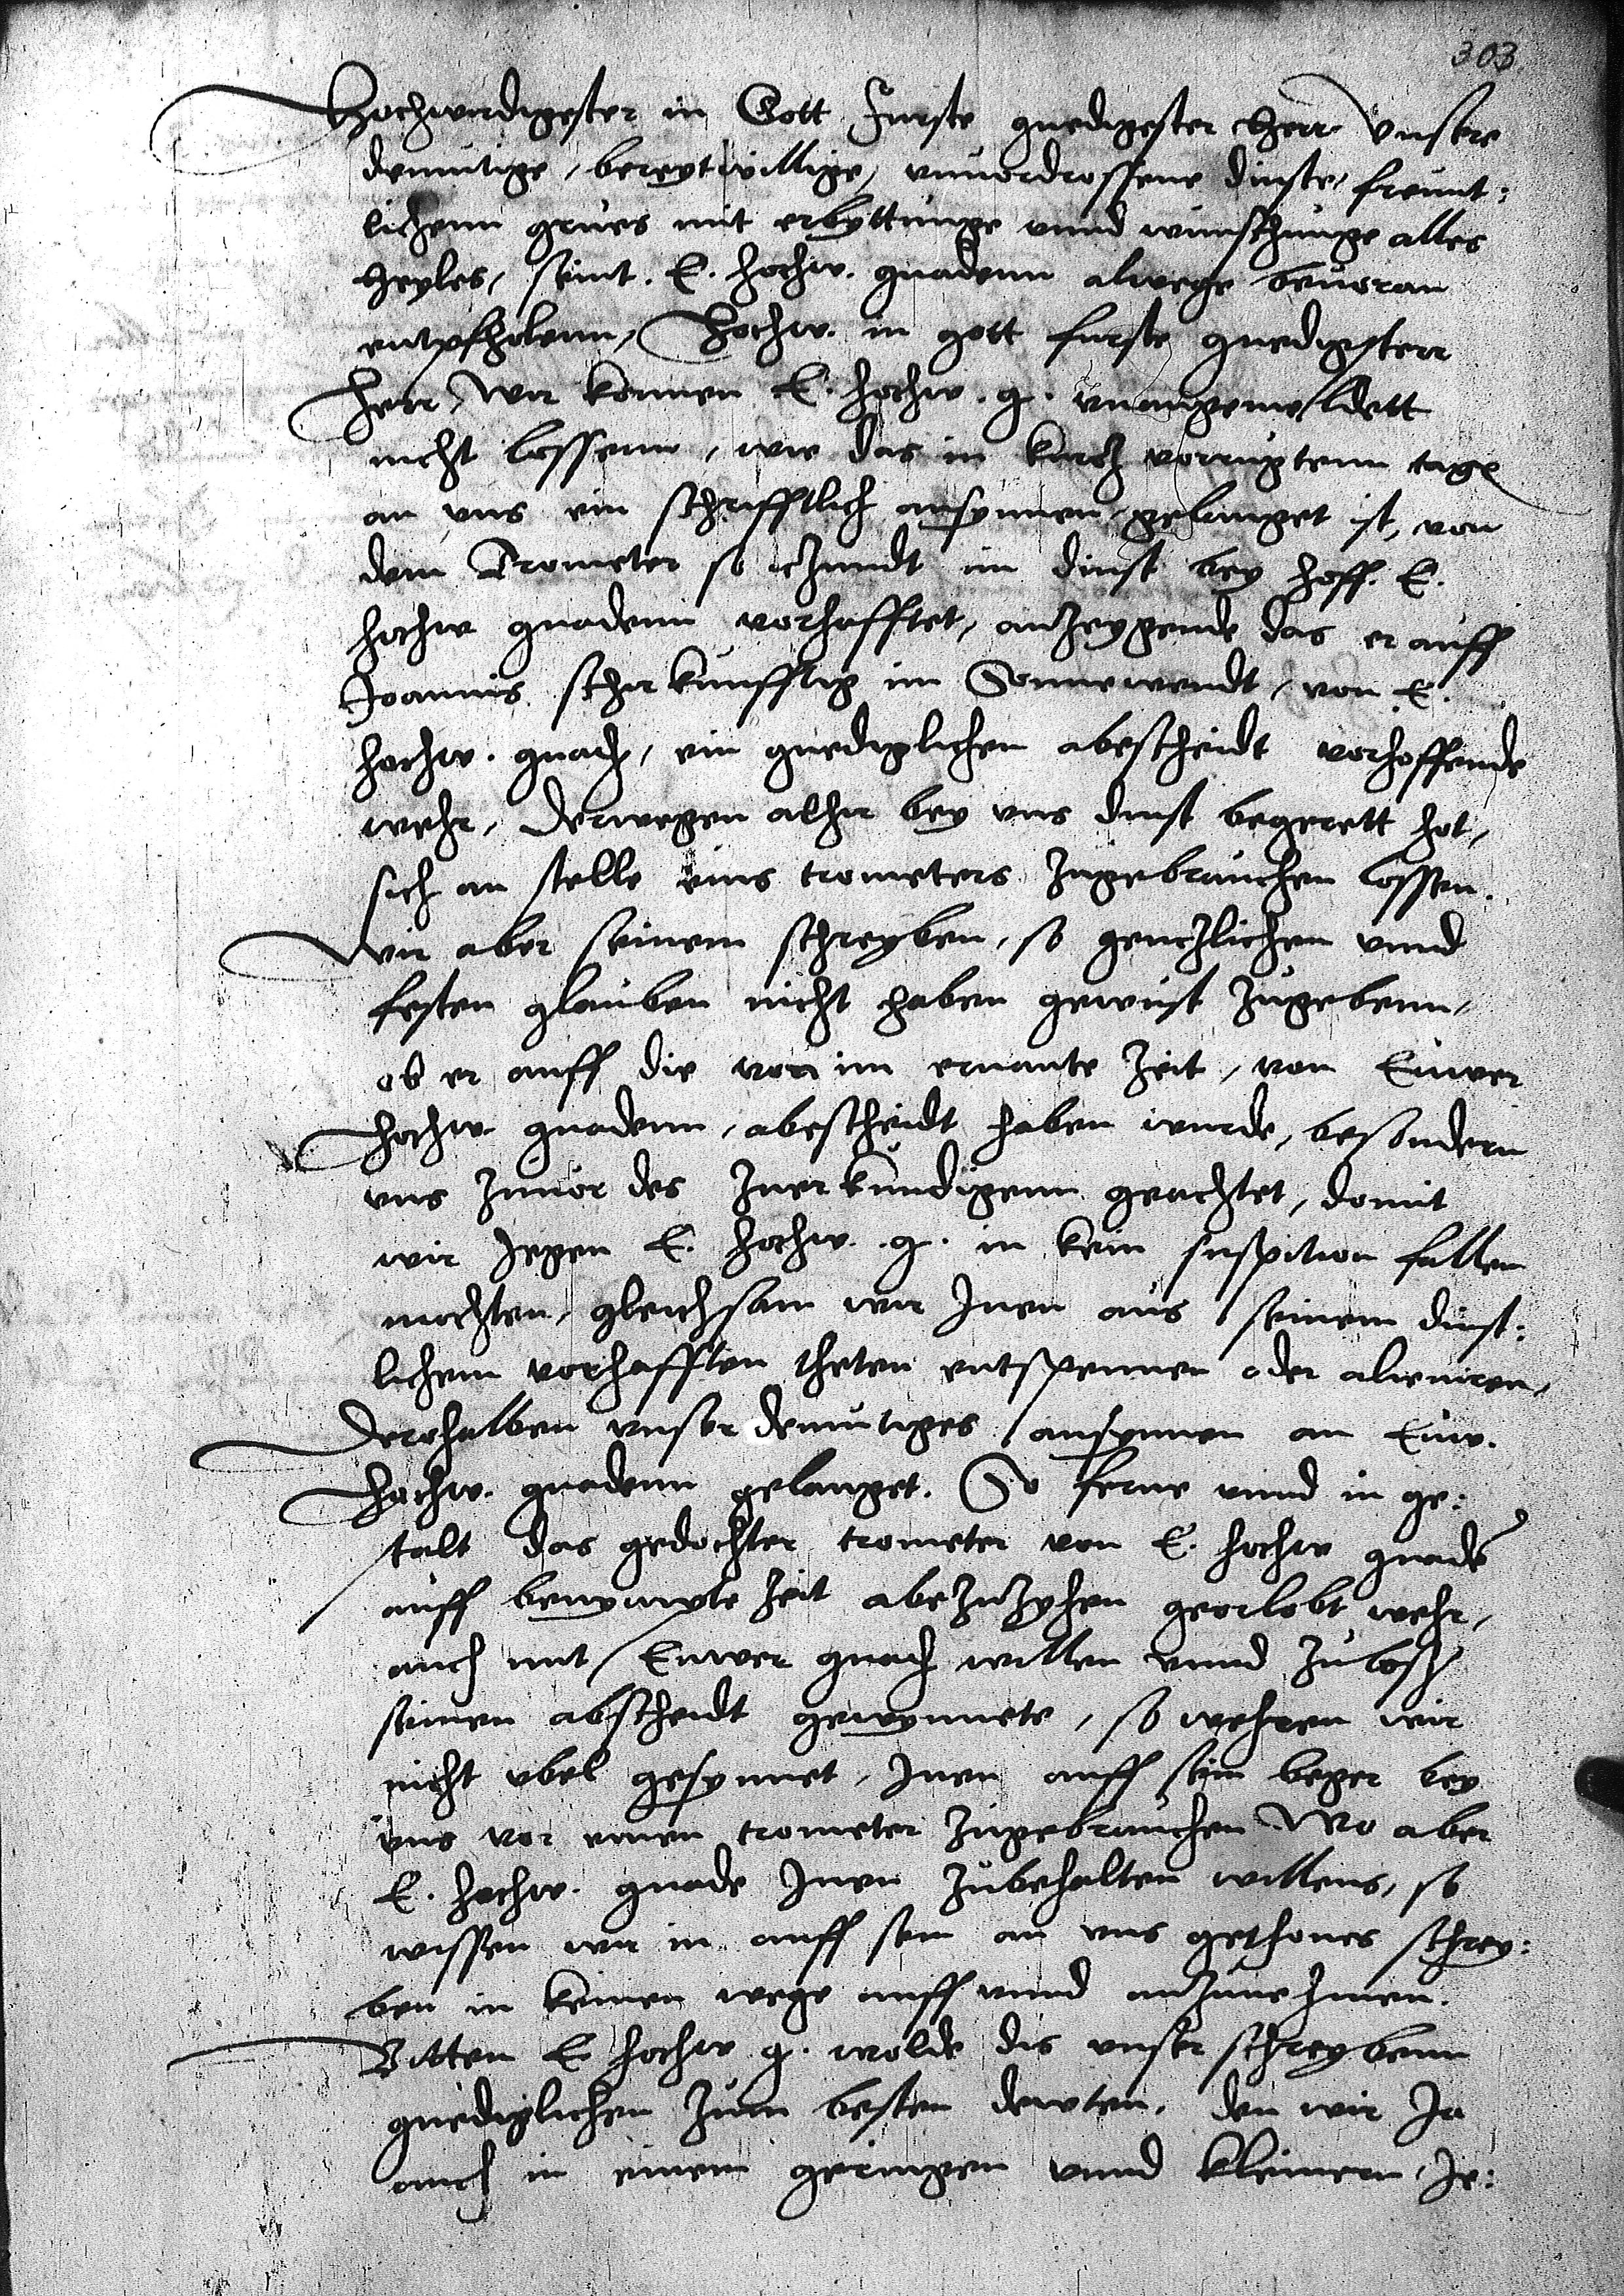 303
Hochwirdigester in Gott Furste gnedigester Herr Unsere
demutige, bereytwillige, vnuordrossene dinste, freunt:
lichenn grues mit erbyttunge vnnd wunschunge alles
heyles, seint. E. hochw. gnadenn alwege beuoran
entpfholenn, Hochw. in gott furste gnedigsterr
Herr, Wir konnen E. hochw. g. vnangemeldett
nicht lossenn, wie das in kurcz vorrugktenn tage
an vns ein schrifftlich ansynnen gelanget ist, von
dem Trometer so iczundt im dinst bey hoff. E.
hochw gnadenn vorhafftet, anzeygende das er auff
Joannis schirkunfftig im Sonnewendt, von E.
hochw. gnad, ein gnediglichen abescheidt vorhoffende
wehr, Derwegen alhir bey vns dinst begerett hot,
sich an stelle eins trometers zugebrauchen lossen.
Wir aber seinem schreyben, so genczlichen vnnd
festen glauben nicht haben gewust zugebenn,
ob er auff die von im ernante zeit, von Euwer
Hochw. gnadenn, abescheidt haben wurde, besondern
vns zuuor des zuerkundigenn geachtet, domit
wir Jegen E. hochw. g. in kein suspition fallen
mochten, gleichsam wir Jnen aus seinem dinst:
lichem vorhafften theten entspennen oder alieniren,
Derohalben vnser demutiges ansynnen an Euw.
Hochw. gnadenn gelanget. So ferne vnnd in ge:
stalt das gedochter trometer von E. hochw gnade
auff benympte zeit abezuzyhen georlobt wehr,
auch mit Euwer gnad willen vnnd zuloß
seinen abscheidt gewynnete, so wehren wir
nicht vbel gesynnet, Jnen auff sein beger bey
vns vor einen trometer zugebrauchen Wo aber
E. hochw. gnade Jnen zubehalten willens, so
wissen wir in auff sein an vns gethones schrey:
ben in keinen wege auff vnnd anzunehmen.
Bitten E hochw g. wolde dis vnser schreybenn
gnediglichen zum besten dewten, den wir Jo
auch in einem geringen vnnd kleinern, Je: